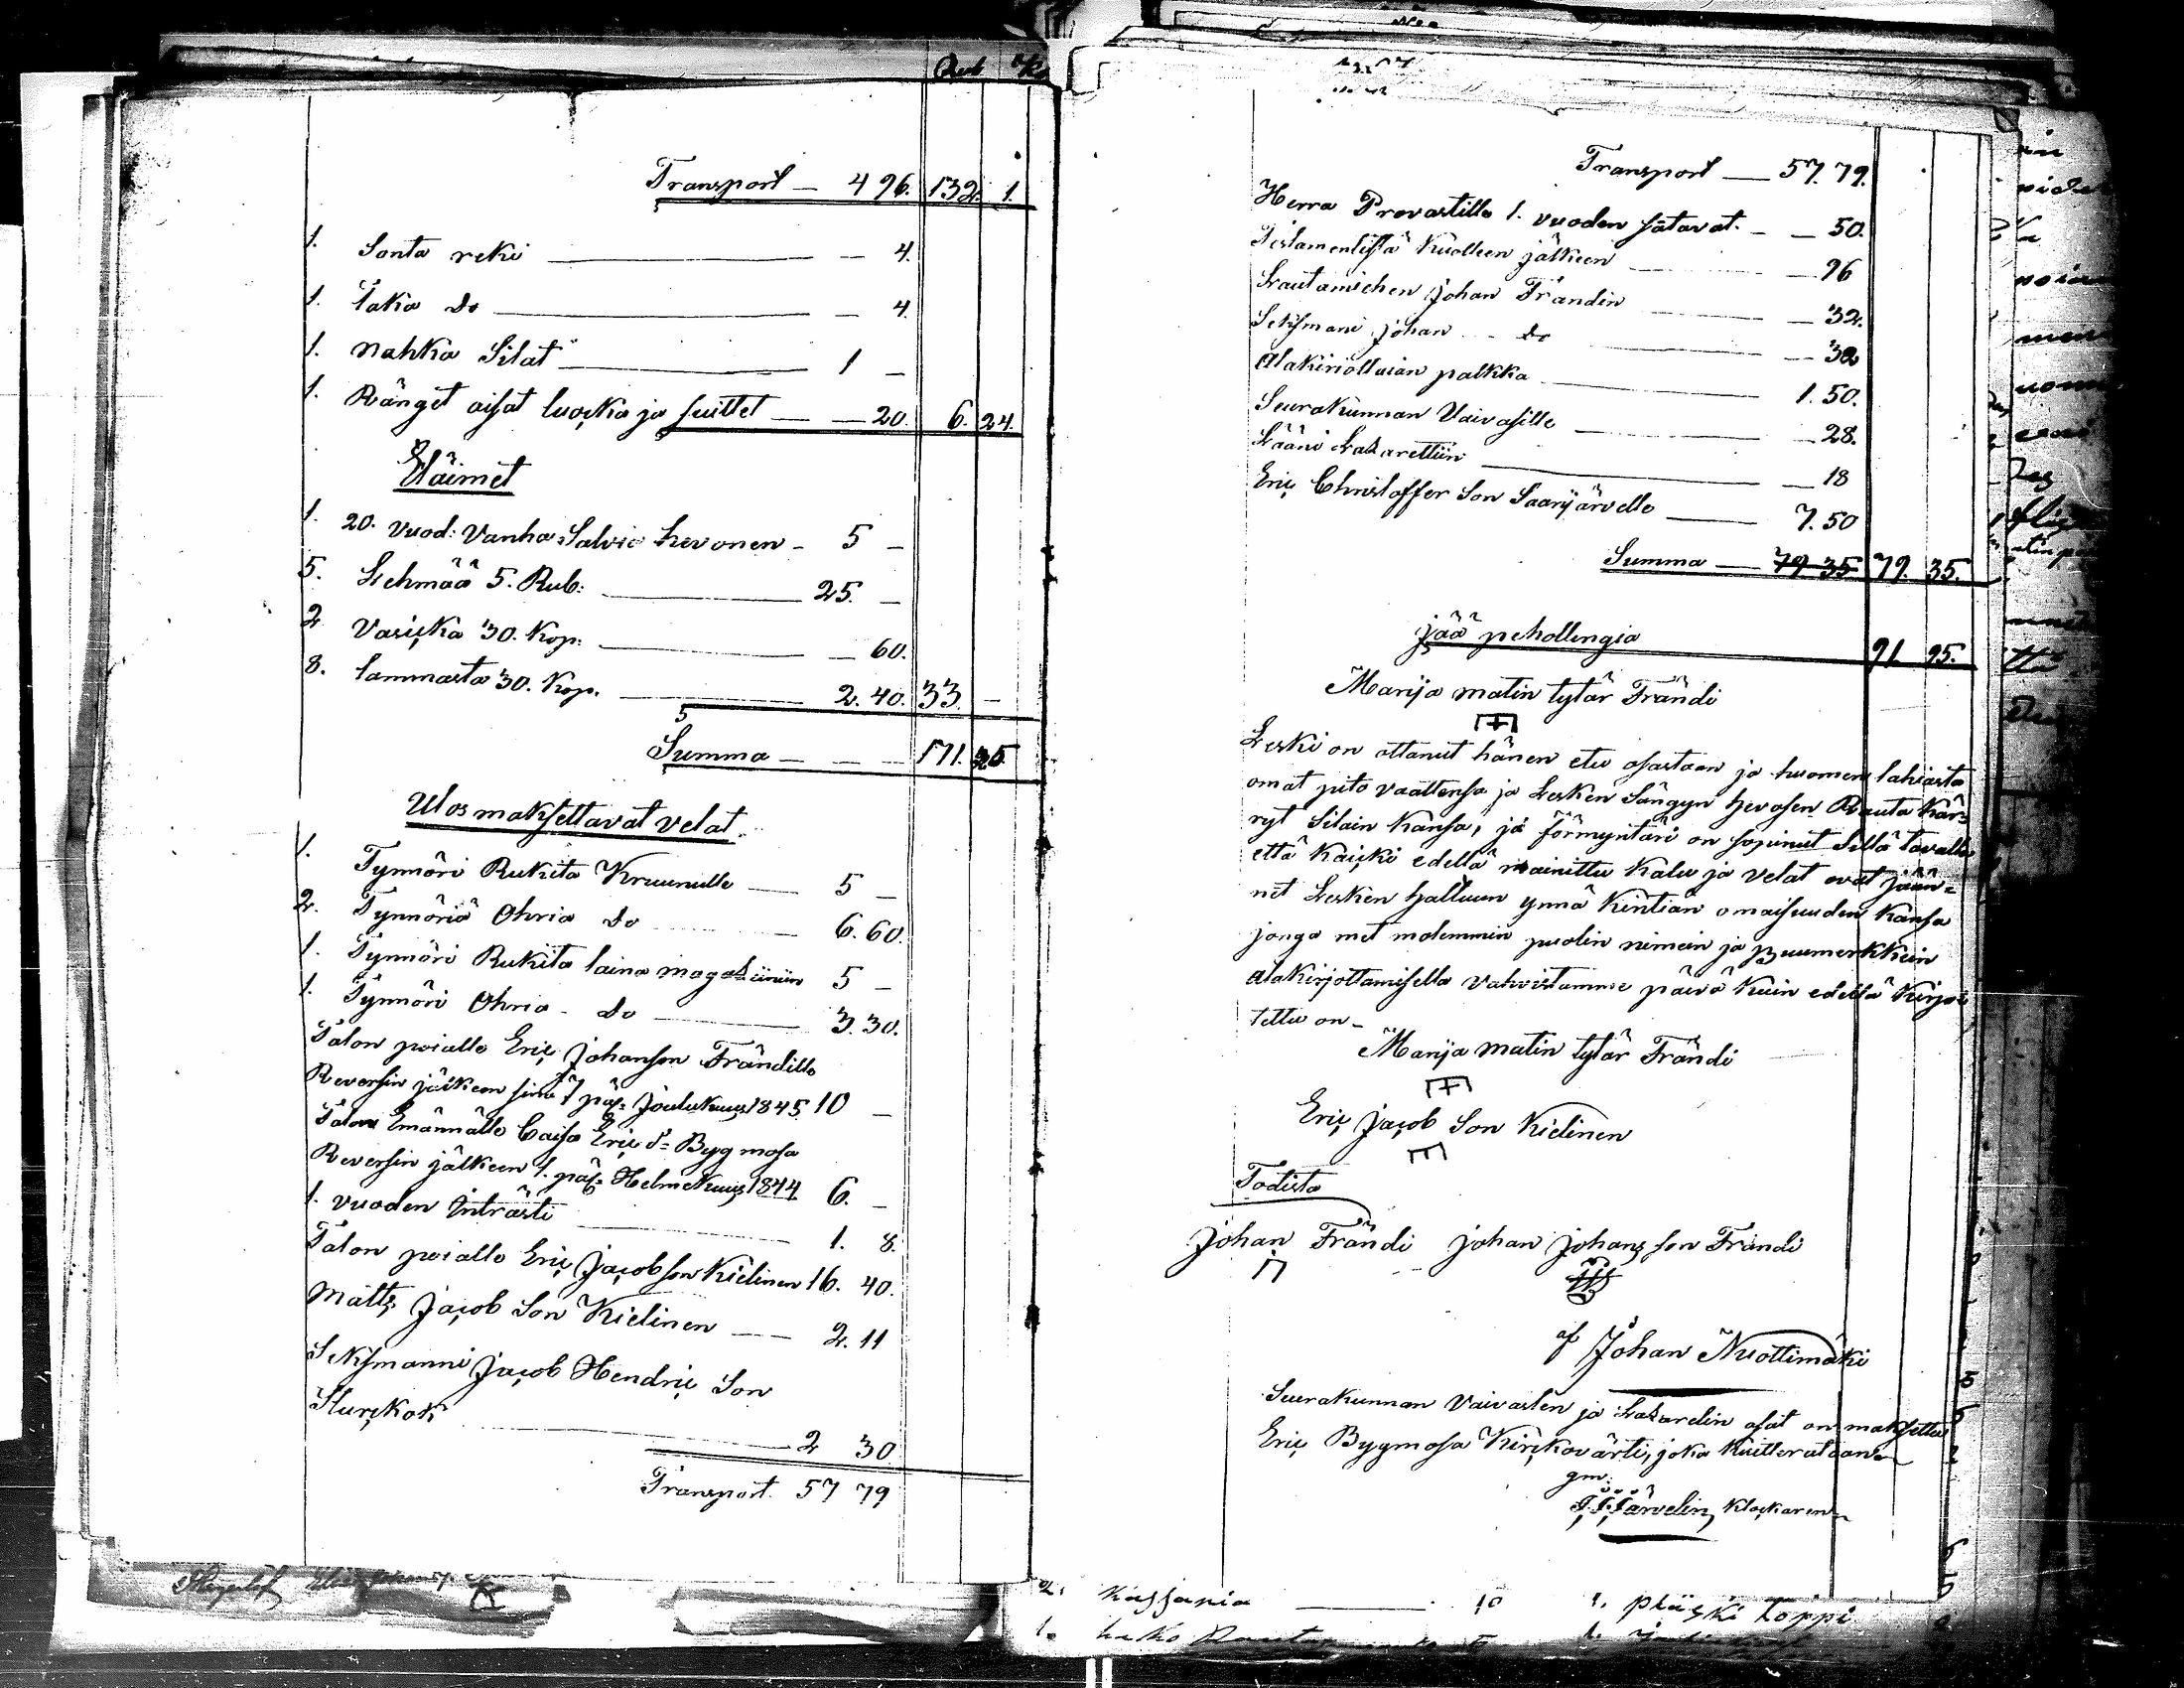 Rub K
Transport — 4 96. 132. 1.
1. Sonta reki — 4.
1. Taka do — 4.
1. nahka Silat — 1 —
1. Ränget aisat luocka ja suittet — 20. 6. 24.
Eläimet
1. 20. vuod: Vanha Salvia hevonen — 5 —
5. Lehmää 5. Rub: — 25. —
2 Vasicka 30. Kop: — 60.
8. lammasta 30. Kop. — 2. 40. 33. —
Summa — 171. 25
Ulos maksettavat velat.
1. Tynnöri Rukita Kruunulle — 5 —
2. Tynnöriä Ohria do — 6. 60.
1. Tynnöri Rukita laina magaziiniin 5 —
1. Tynnöri Ohria — do — 3. 30.
Talon poialle Eric Johanson Frändille
Reversin jälkeen siinä 7 päi: Joulukuus 1845 10 —
Talon Emännälle Caisa Eric d:r Bygmosa
Reversin jälkeen 1. päi: Helmekuus 1844 6. —
1. vuoden Inträsti — 1. 8.
Talon poialle Eric Jacob son Kielinen 16. 40.
Matts Jacob Son Kielinen — 2. 11
Seksmanni Jacob Hendric Son
Slurckok — 2 30
Transport. 57 79
Transport — 57. 79.
Herra Provastille 1. vuoden satavat. — 50.
Testamentistä Kuolleen jälkeen — 96
Lautamiehen Johan Frändin — 32.
Seksmani Johan — do — 32
Alakirjottaian palkka — 1. 50.
Seurakunnan Vaivasille — 28.
Lääni Lazarettiin — 18
Eric Christoffer Son Saarijärvelle — 7. 50
Summa — 79 35 79. 35.
jää pehollingia 91 95.
Marija matin tytär Frändi
Leski on ottanut hänen etu osastaan ja huomen lahiasta
omat pito vaattensa ja Lesken Sängyn hevosen Rauta Kär=
ryt Silain Kansa, ja förmyntäri on sopinut sillä tavalla
että Kaicki edellä mainittu Kalu ja velat ovat jään=
net Lesken haltuun ynnä Kintiän omaisuuden Kansa
jonga met molemmin puolin nimein ja puumerkkein
alakirjottamisella vahvistamme päivä Kuin edellä Kirjoi
tettu on —
Marija matin tytär Frändi
Eric Jacob Son Kielinen
Todista
Johan Frändi Johan Johans son Frändi
af Johan Nuottimäki
Seurakunnan Vaivasten ja Lazaretin osat on maksettu
Eric Bygmosa Kirckovärti, joka Kuitterataan
gm.
J. J. Järvelin, Klockaren
2. Kassaria — 10 1. plüski toppi
1. hako Rauta